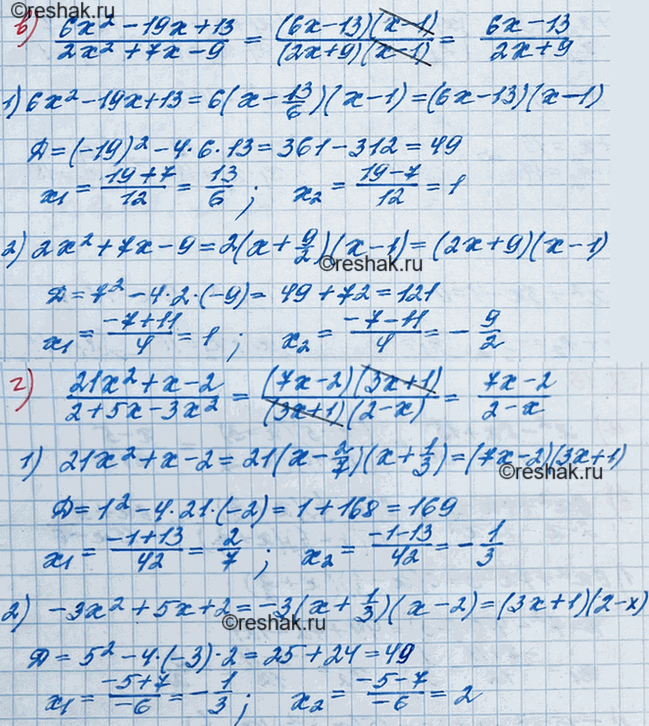 ©reshak.ru
в) (6x² - 19x + 13)/(2x² + 7x - 9) = ((6x - 13)(x - 1))/((2x + 9)(x - 1)) = (6x - 13)/(2x + 9)
1) 6x² - 19x + 13 = 6(x - 13/6)(x - 1) = (6x - 13)(x - 1)
Д = (-19)² - 4·6·13 = 361 - 312 = 49
x₁ = (19 + 7)/12 = 13/6; x₂ = (19 - 7)/12 = 1
2) 2x² + 7x - 9 = 2(x + 9/2)(x - 1) = (2x + 9)(x - 1)
©reshak.ru
Д = 7² - 4·2·(-9) = 49 + 72 = 121
x₁ = (-7 + 11)/4 = 1; x₂ = (-7 - 11)/4 = -9/2
г) (21x² + x - 2)/(2 + 5x - 3x²) = ((7x - 2)(3x + 1))/((3x + 1)(2 - x)) = (7x - 2)/(2 - x)
1) 21x² + x - 2 = 21(x - 2/7)(x + 1/3) = (7x - 2)(3x + 1)
©reshak.ru
Д = 1² - 4·21·(-2) = 1 + 168 = 169
x₁ = (-1 + 13)/42 = 2/7; x₂ = (-1 - 13)/42 = -1/3
2) -3x² + 5x + 2 = -3(x + 1/3)(x - 2) = (3x + 1)(2 - x)
©reshak.ru
Д = 5² - 4·(-3)·2 = 25 + 24 = 49
x₁ = (-5 + 7)/-6 = -1/3; x₂ = (-5 - 7)/-6 = 2